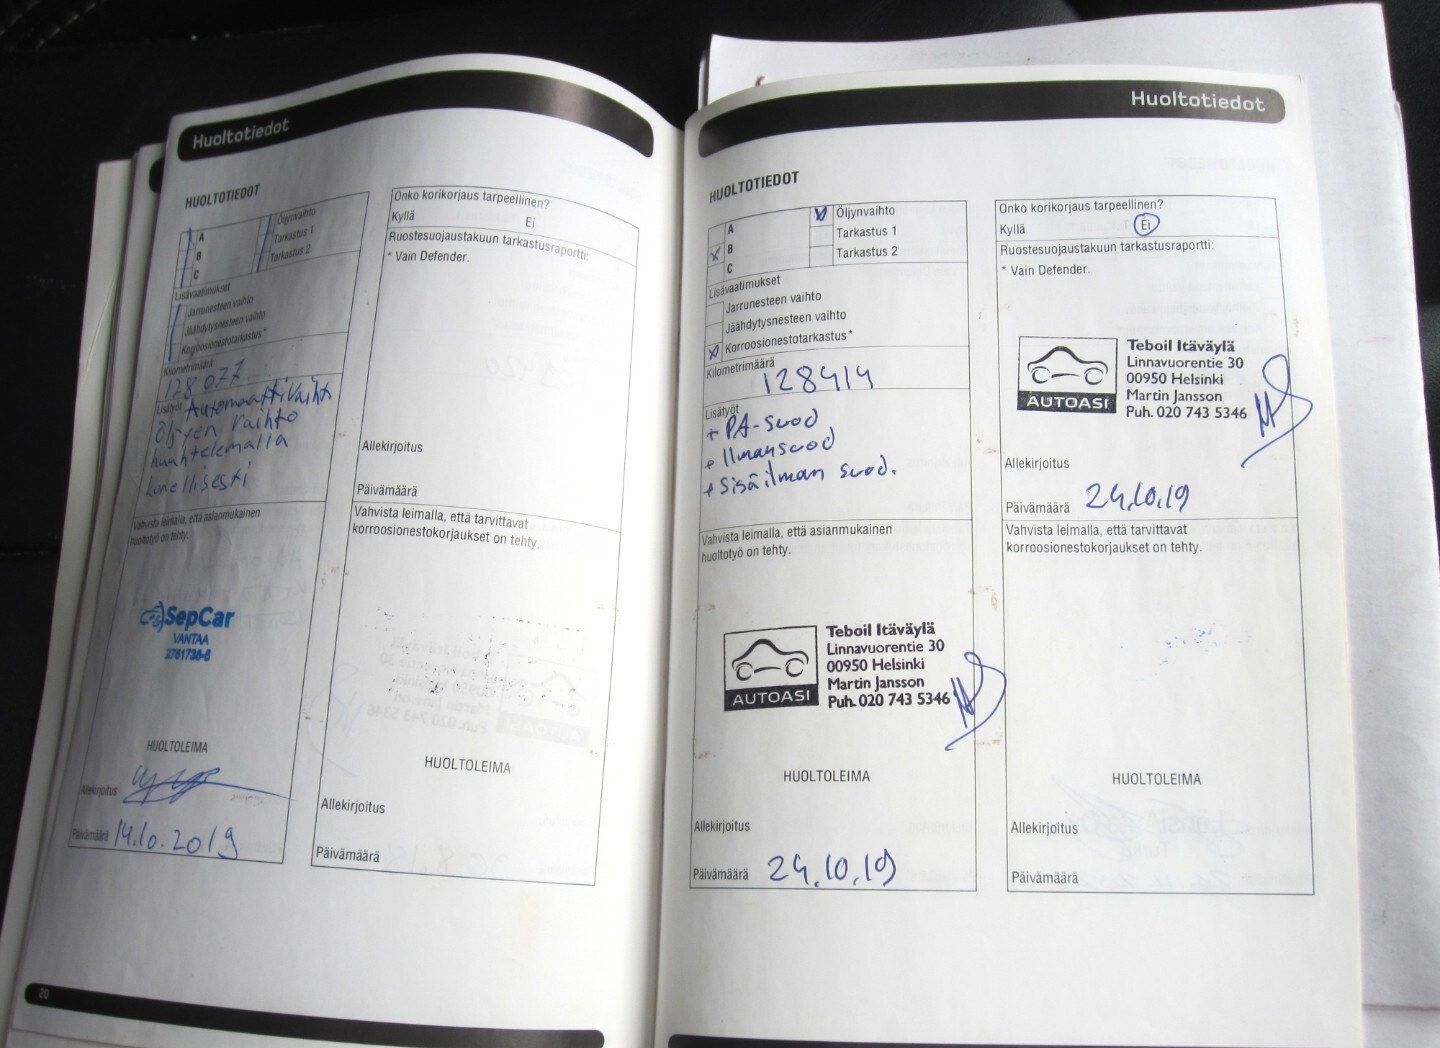 Huoltotiedot
HUOLTOTIEDOT
A
B
C
Öljynvaihto
Tarkastus 1
Tarkastus 2
Lisävaatimukset
Jarrunesteen vaihto
Jäähdytysnesteen vaihto
Korroosionestotarkastus*
Kilometrimäärä
128 077
Lisätyöt Automaattivaihto
Öljyen vaihto
huuhtelemalla
konellisesti
Vahvista leimalla, että asianmukainen
huoltotyö on tehty.
SepCar
VANTAA
2761736-6
HUOLTOLEIMA
Allekirjoitus
Päivämäärä 14.10.2019
Onko korikorjaus tarpeellinen?
Kyllä Ei
Ruostesuojaustakuun tarkastusraportti:
* Vain Defender.
Allekirjoitus
Päivämäärä
Vahvista leimalla, että tarvittavat
korroosionestokorjaukset on tehty.
HUOLTOLEIMA
Allekirjoitus
Päivämäärä
20
Huoltotiedot
HUOLTOTIEDOT
A
B
C
Öljynvaihto
Tarkastus 1
Tarkastus 2
Lisävaatimukset
Jarrunesteen vaihto
Jäähdytysnesteen vaihto
Korroosionestotarkastus*
Kilometrimäärä
128414
Lisätyöt
+ PA-suod
+ Ilmansuod
+ Sisäilman suod.
Vahvista leimalla, että asianmukainen
huoltotyö on tehty.
AUTOASI
Teboil Itäväylä
Linnavuorentie 30
00950 Helsinki
Martin Jansson
Puh. 020 743 5346
HUOLTOLEIMA
Allekirjoitus
Päivämäärä 24.10.19
Onko korikorjaus tarpeellinen?
Kyllä Ei
Ruostesuojaustakuun tarkastusraportti:
* Vain Defender.
AUTOASI
Teboil Itäväylä
Linnavuorentie 30
00950 Helsinki
Martin Jansson
Puh. 020 743 5346
Allekirjoitus
Päivämäärä 24.10.19
Vahvista leimalla, että tarvittavat
korroosionestokorjaukset on tehty.
HUOLTOLEIMA
Allekirjoitus
Päivämäärä